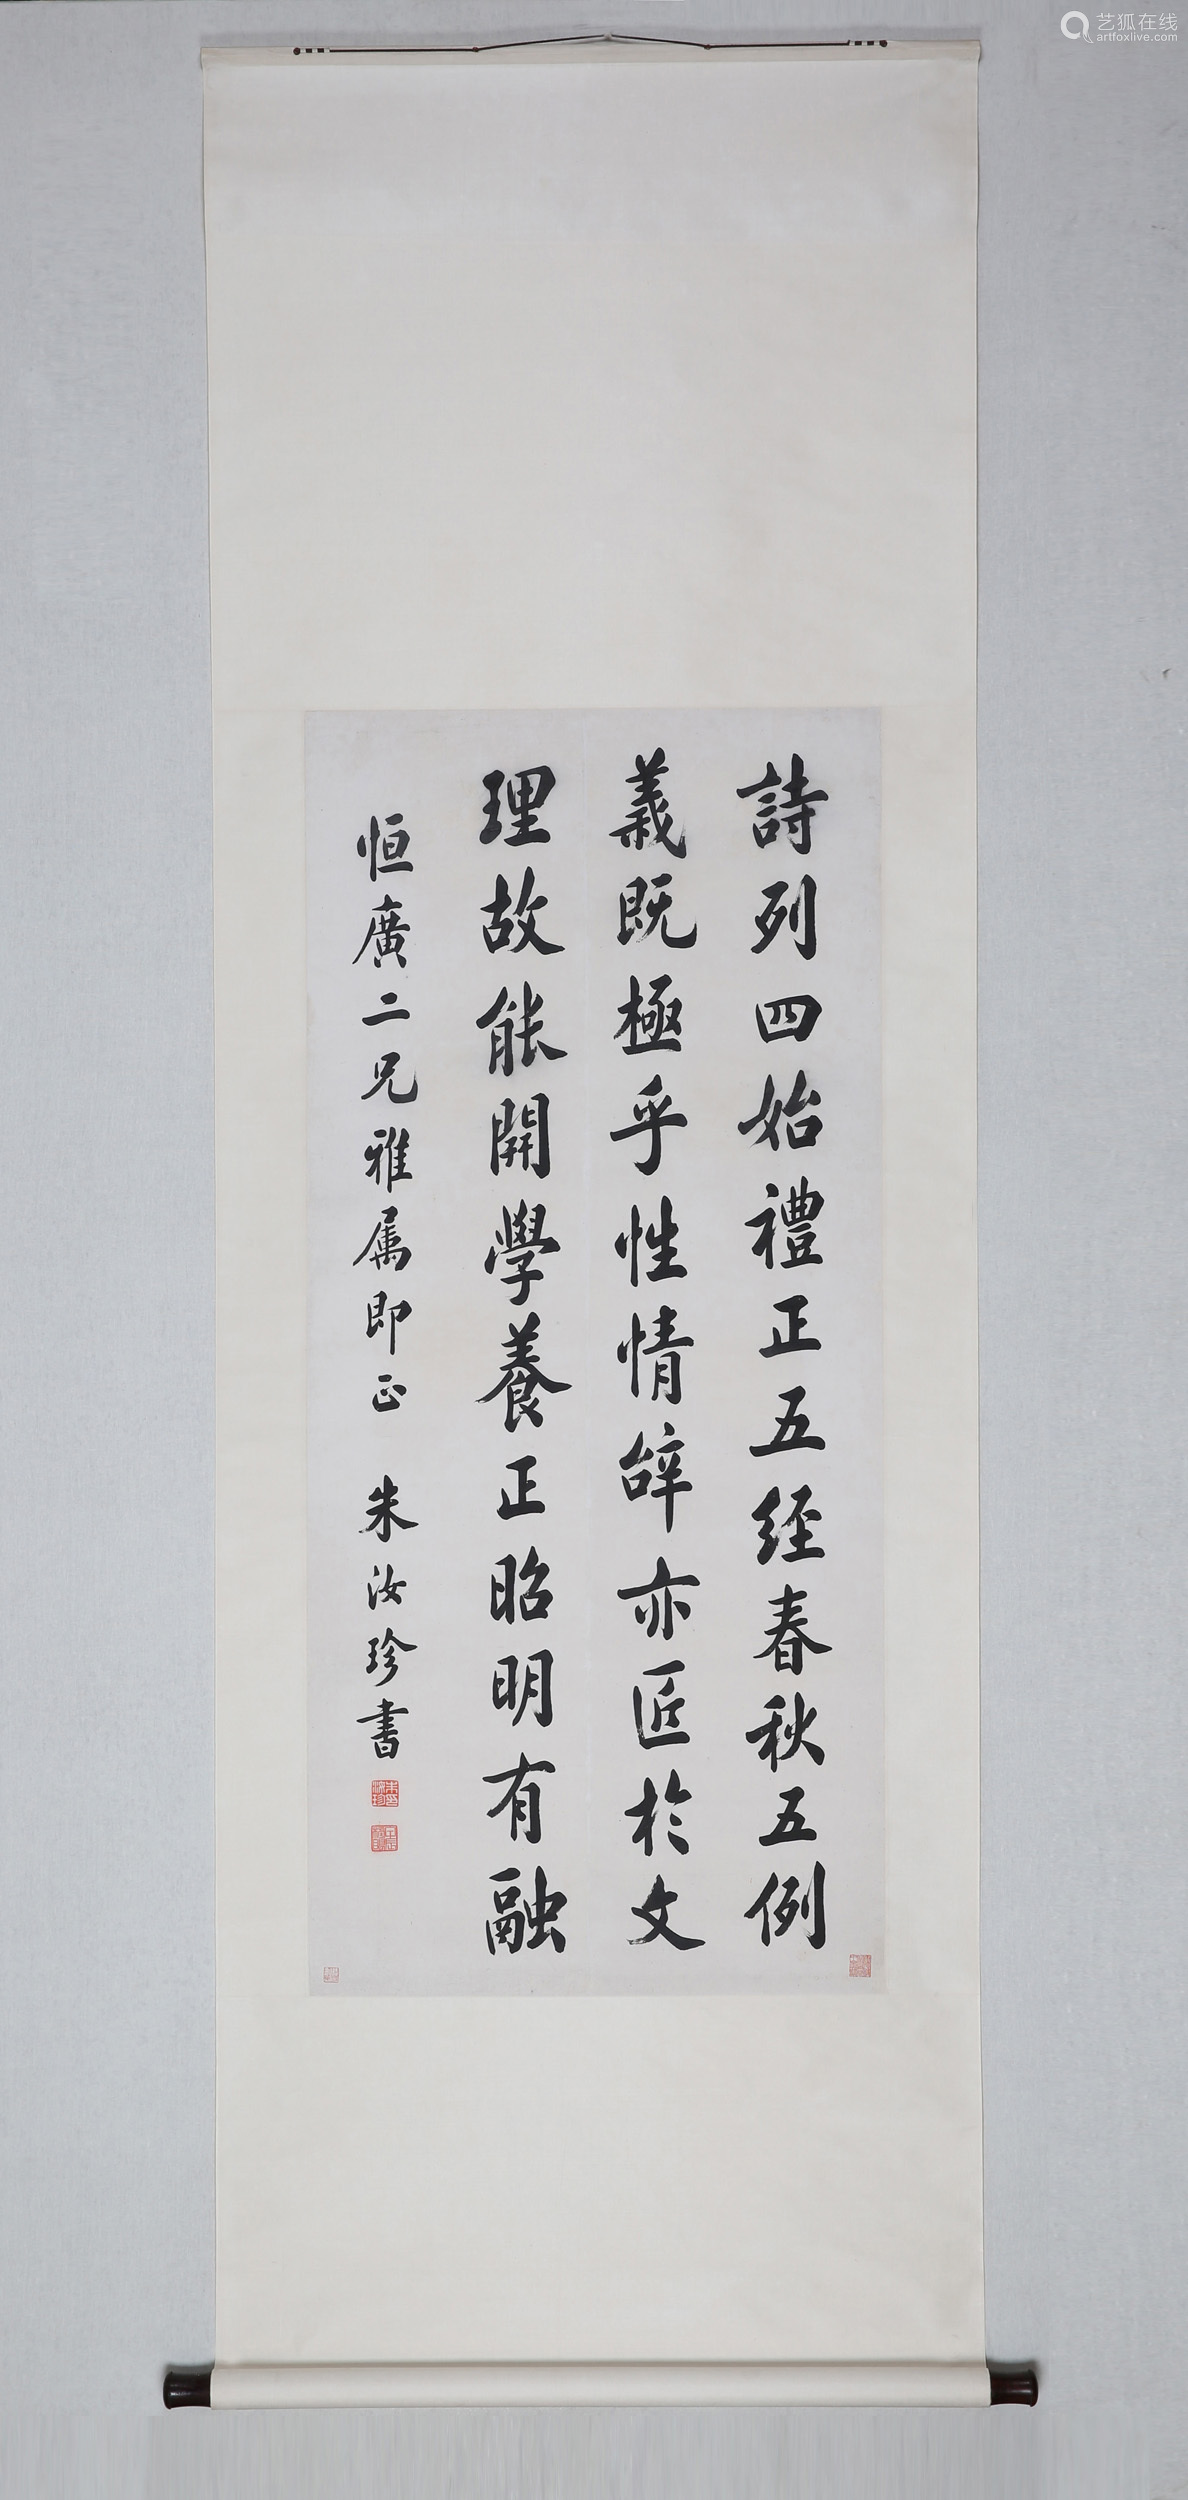 詩列四始禮正五經春秋五例
義既極乎性情辭亦匠於文
理故能開學養正昭明有融
恒廣二兄雅属即正 朱汝珍書
艺狐在线
artfoxlive.com